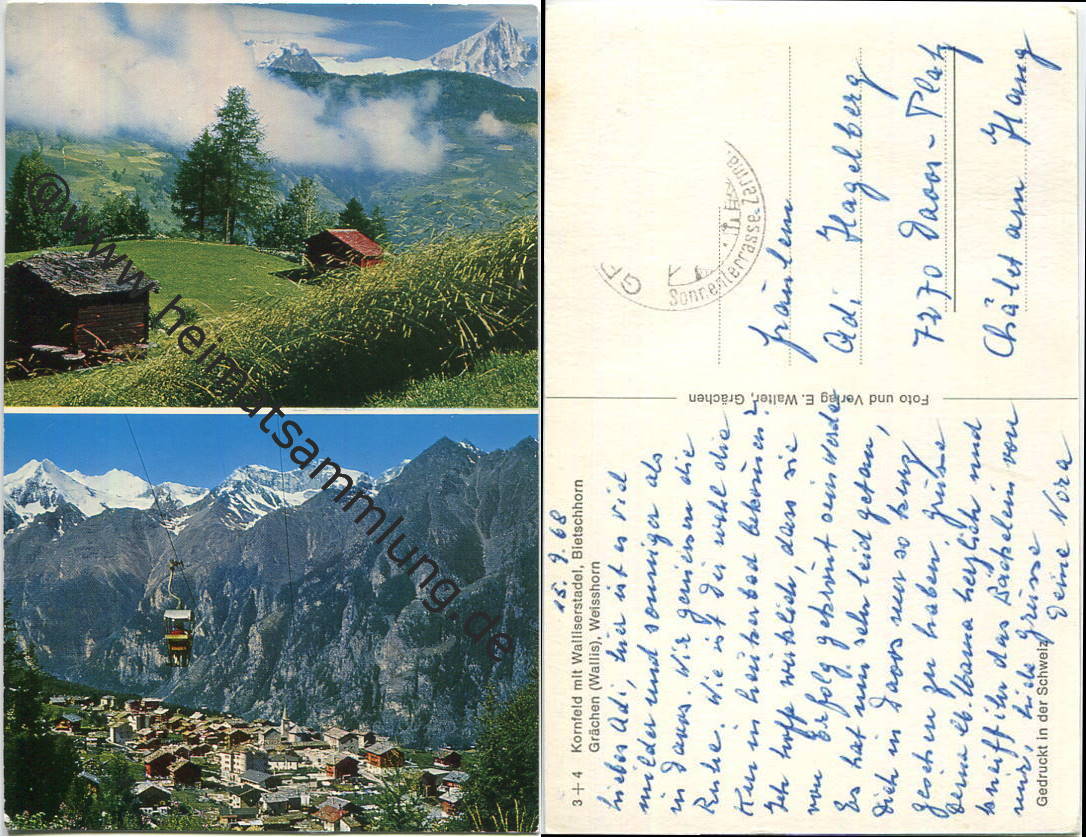 @www.heimatsammlung.de
3+4 Kornfeld mit Walliserstadel, Bietschhorn
Grächen (Wallis), Weisshorn
15. 9. 68
Liebes Adi, hier ist es viel
milder und sonniger als
in Davos. Wir geniessen die
Ruhe. Wie ist Dir wohl die
Kur in bekommen?
Ich hoffe wirklich, dass sie
von Erfolg gekrönt sein werde
Es hat mir sehr leid getan,
Dich in Davos nur so kurz
gesehen zu haben. grüsse
Deine lb. Mama herzlich und
das Bächelein von
mir, viele Grüsse
Deine Vera
Gedruckt in der Schweiz
Foto und Verlag E. Walter, Grächen
Sonnenterrasse Zerma
Fräulein
Adi Hagelberg
7270 Davos-Platz
Châlet am Hang